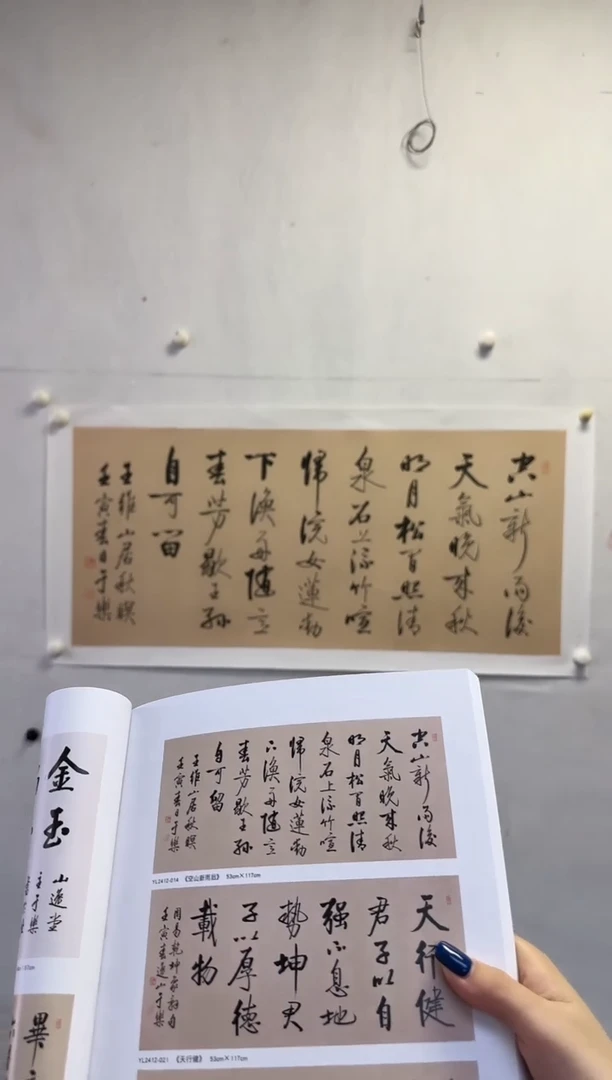 空山新雨後
天氣晚来秋
明月松間照清
泉石上流竹喧
歸浣女蓮動
下漁舟隨意
春芳歇王孫
自可留
王維山居秋暝
壬寅春日于樂
空山新雨後
天氣晚来秋
明月松間照清
泉石上流竹喧
歸浣女蓮動
下漁舟隨意
春芳歇王孫
自可留
王維山居秋暝
壬寅春日于樂
YL2412-014 《空山新雨后》 53cm×117cm
天行健
君子以自
强不息地
勢坤君
子以厚德
載物
周易乾坤
壬寅春逸山于樂
YL2412-021 《天行健》 53cm×117cm
金玉
于樂
畢